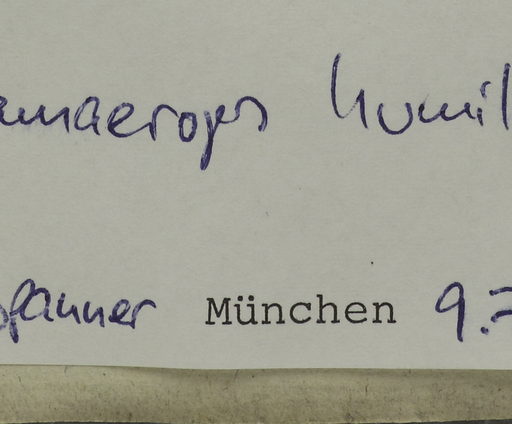 amaerops humil
fanner München 9.